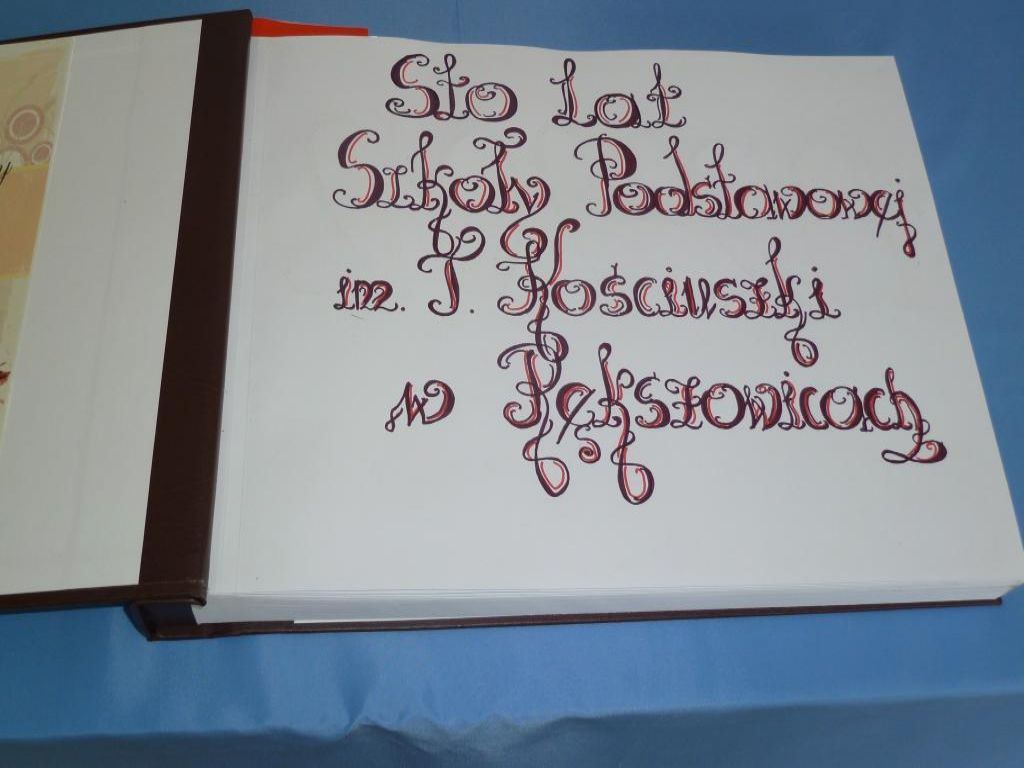 Sto Lat
Szkoły Podstawowej
im. T. Kościuszki
w Rększowicach